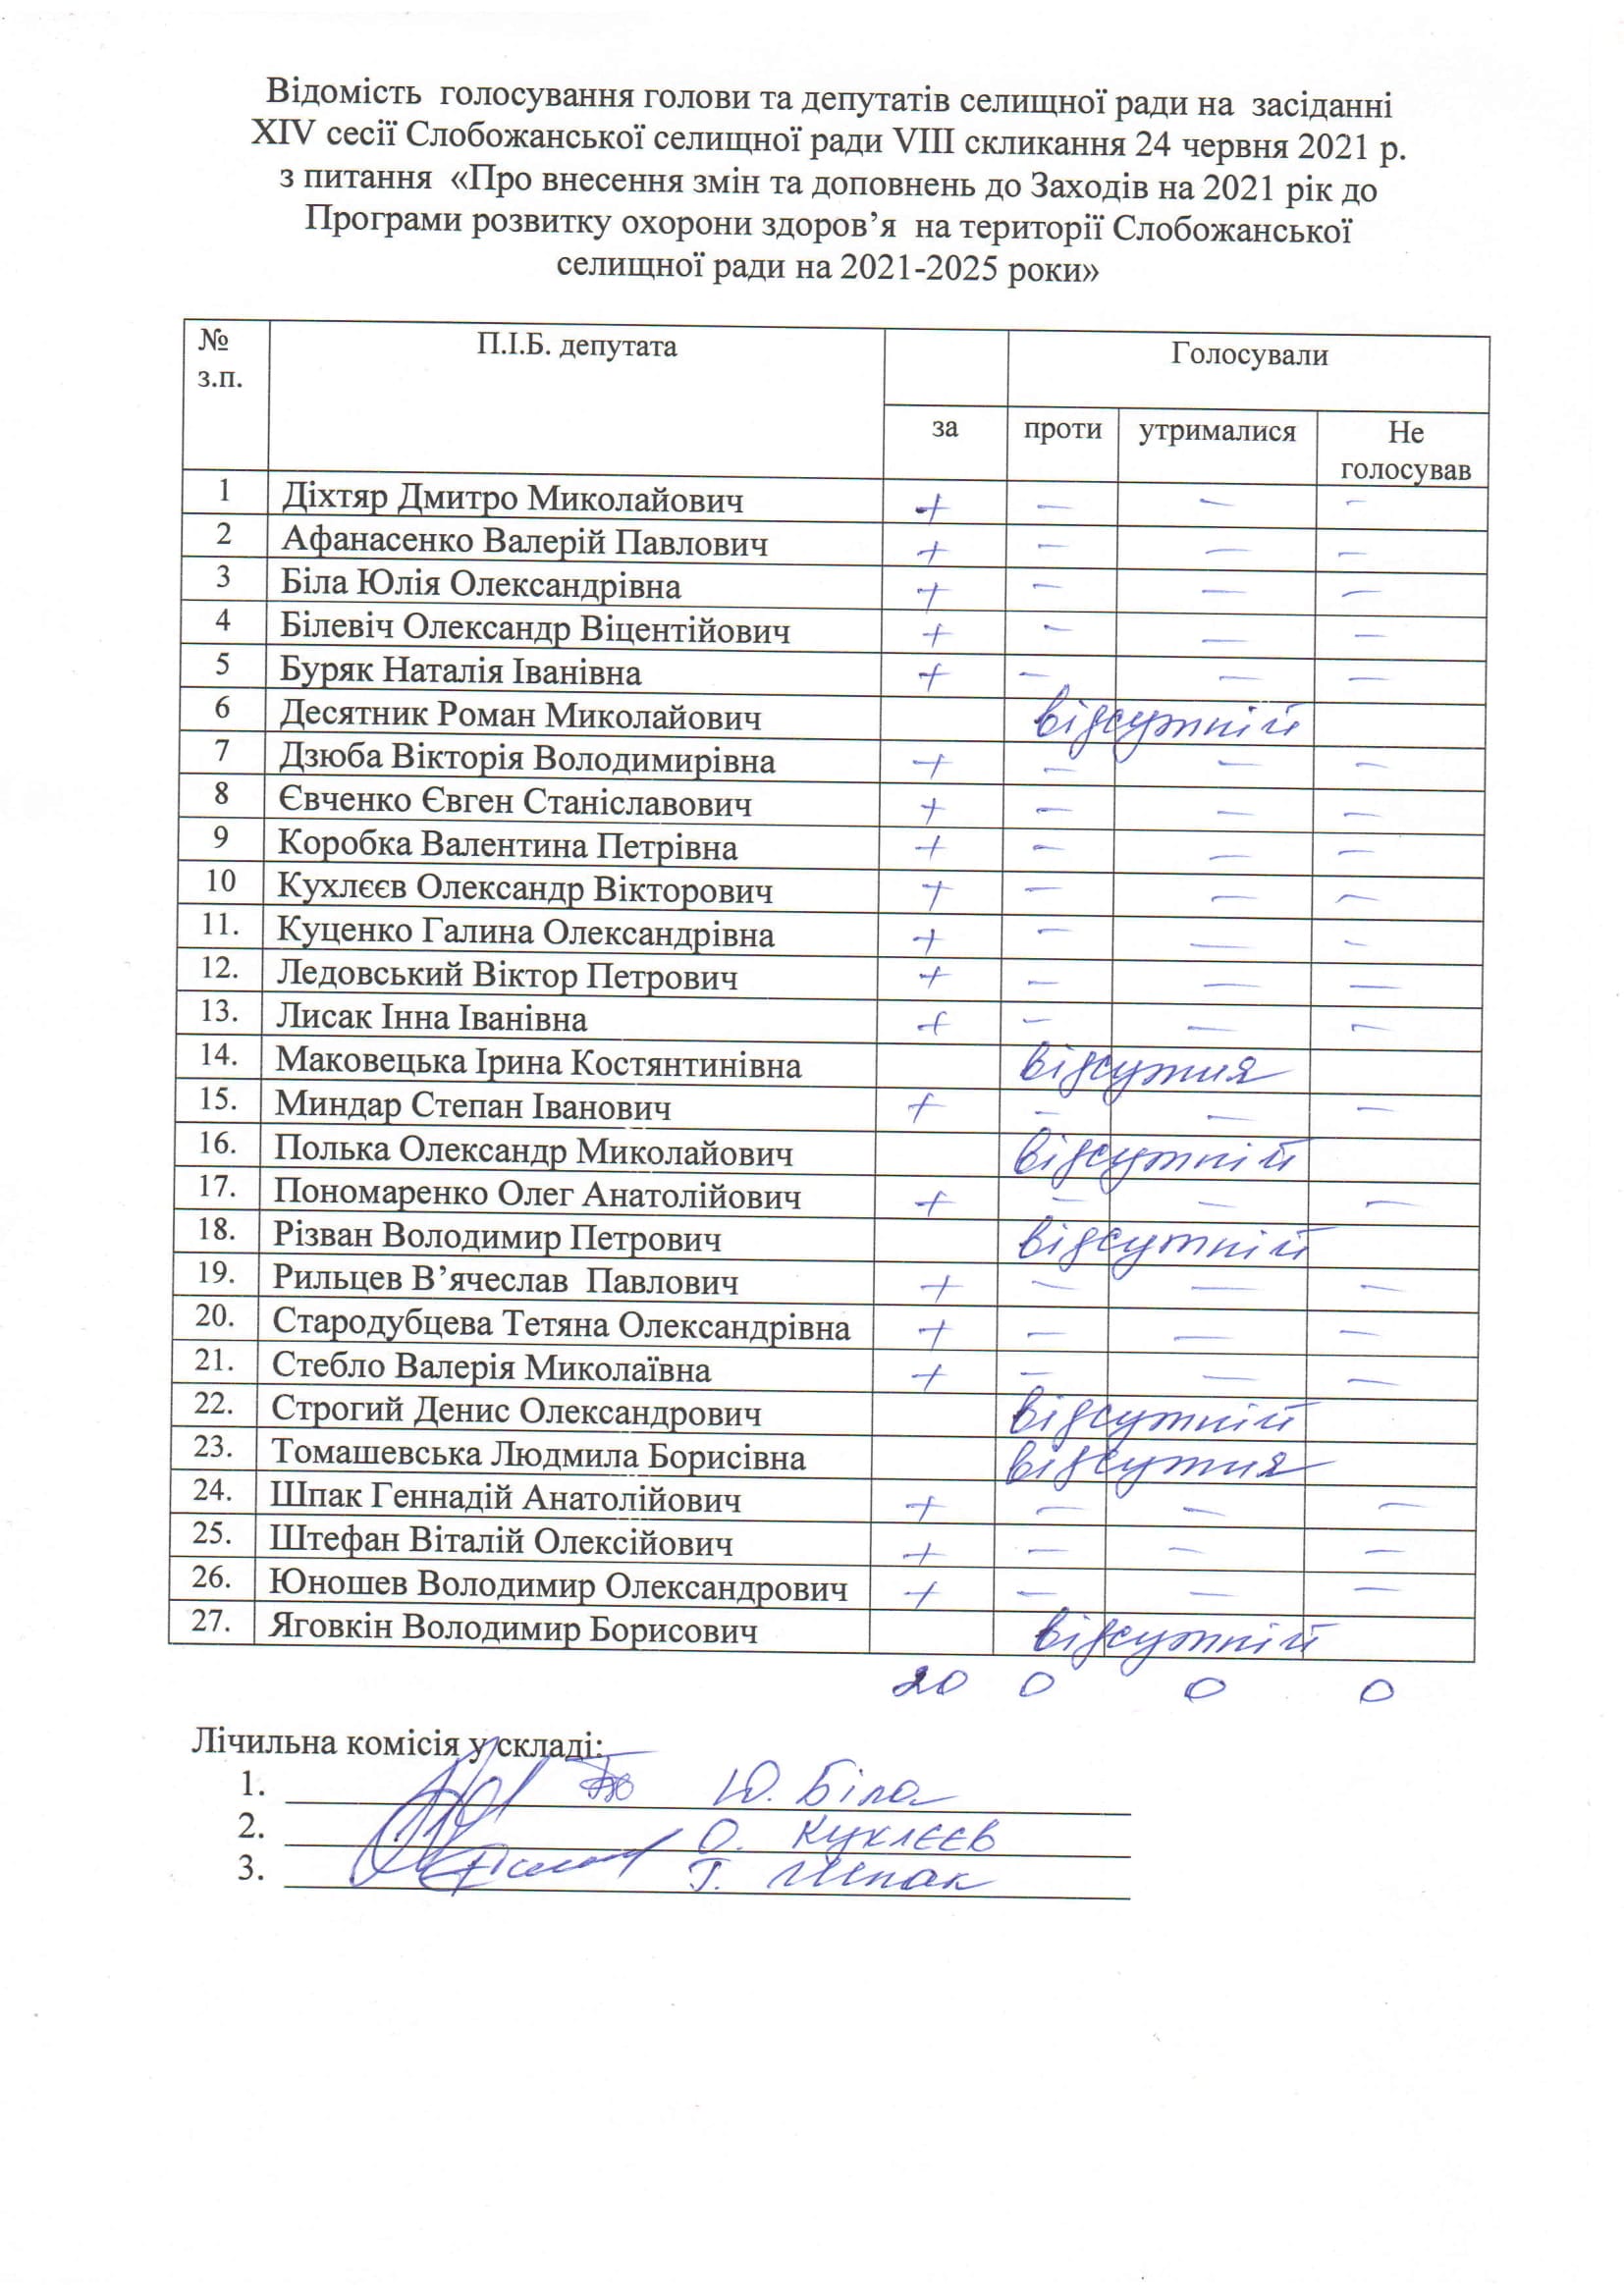 Відомість голосування голови та депутатів селищної ради на засіданні
XIV сесії Слобожанської селищної ради VIII скликання 24 червня 2021 р.
з питання «Про внесення змін та доповнень до Заходів на 2021 рік до
Програми розвитку охорони здоров’я на території Слобожанської
селищної ради на 2021-2025 роки»
№ з.п. П.І.Б. депутата Голосували
за проти утрималися Не голосував
1 Діхтяр Дмитро Миколайович + – – –
2 Афанасенко Валерій Павлович + – – –
3 Біла Юлія Олександрівна + – – –
4 Білевіч Олександр Віцентійович + – – –
5 Буряк Наталія Іванівна + – – –
6 Десятник Роман Миколайович відсутній
7 Дзюба Вікторія Володимирівна + – – –
8 Євченко Євген Станіславович + – – –
9 Коробка Валентина Петрівна + – – –
10 Кухлєєв Олександр Вікторович + – – –
11. Куценко Галина Олександрівна + – – –
12. Ледовський Віктор Петрович + – – –
13. Лисак Інна Іванівна + – – –
14. Маковецька Ірина Костянтинівна відсутня
15. Миндар Степан Іванович + – – –
16. Полька Олександр Миколайович відсутній
17. Пономаренко Олег Анатолійович + – – –
18. Різван Володимир Петрович відсутній
19. Рильцев В’ячеслав Павлович + – – –
20. Стародубцева Тетяна Олександрівна + – – –
21. Стебло Валерія Миколаївна + – – –
22. Строгий Денис Олександрович відсутній
23. Томашевська Людмила Борисівна відсутня
24. Шпак Геннадій Анатолійович + – – –
25. Штефан Віталій Олексійович + – – –
26. Юношев Володимир Олександрович + – – –
27. Яговкін Володимир Борисович відсутній
20 0 0 0
Лічильна комісія у складі:
1. Ю. Біла
2. О. Кухлєєв
3. Г. Шпак